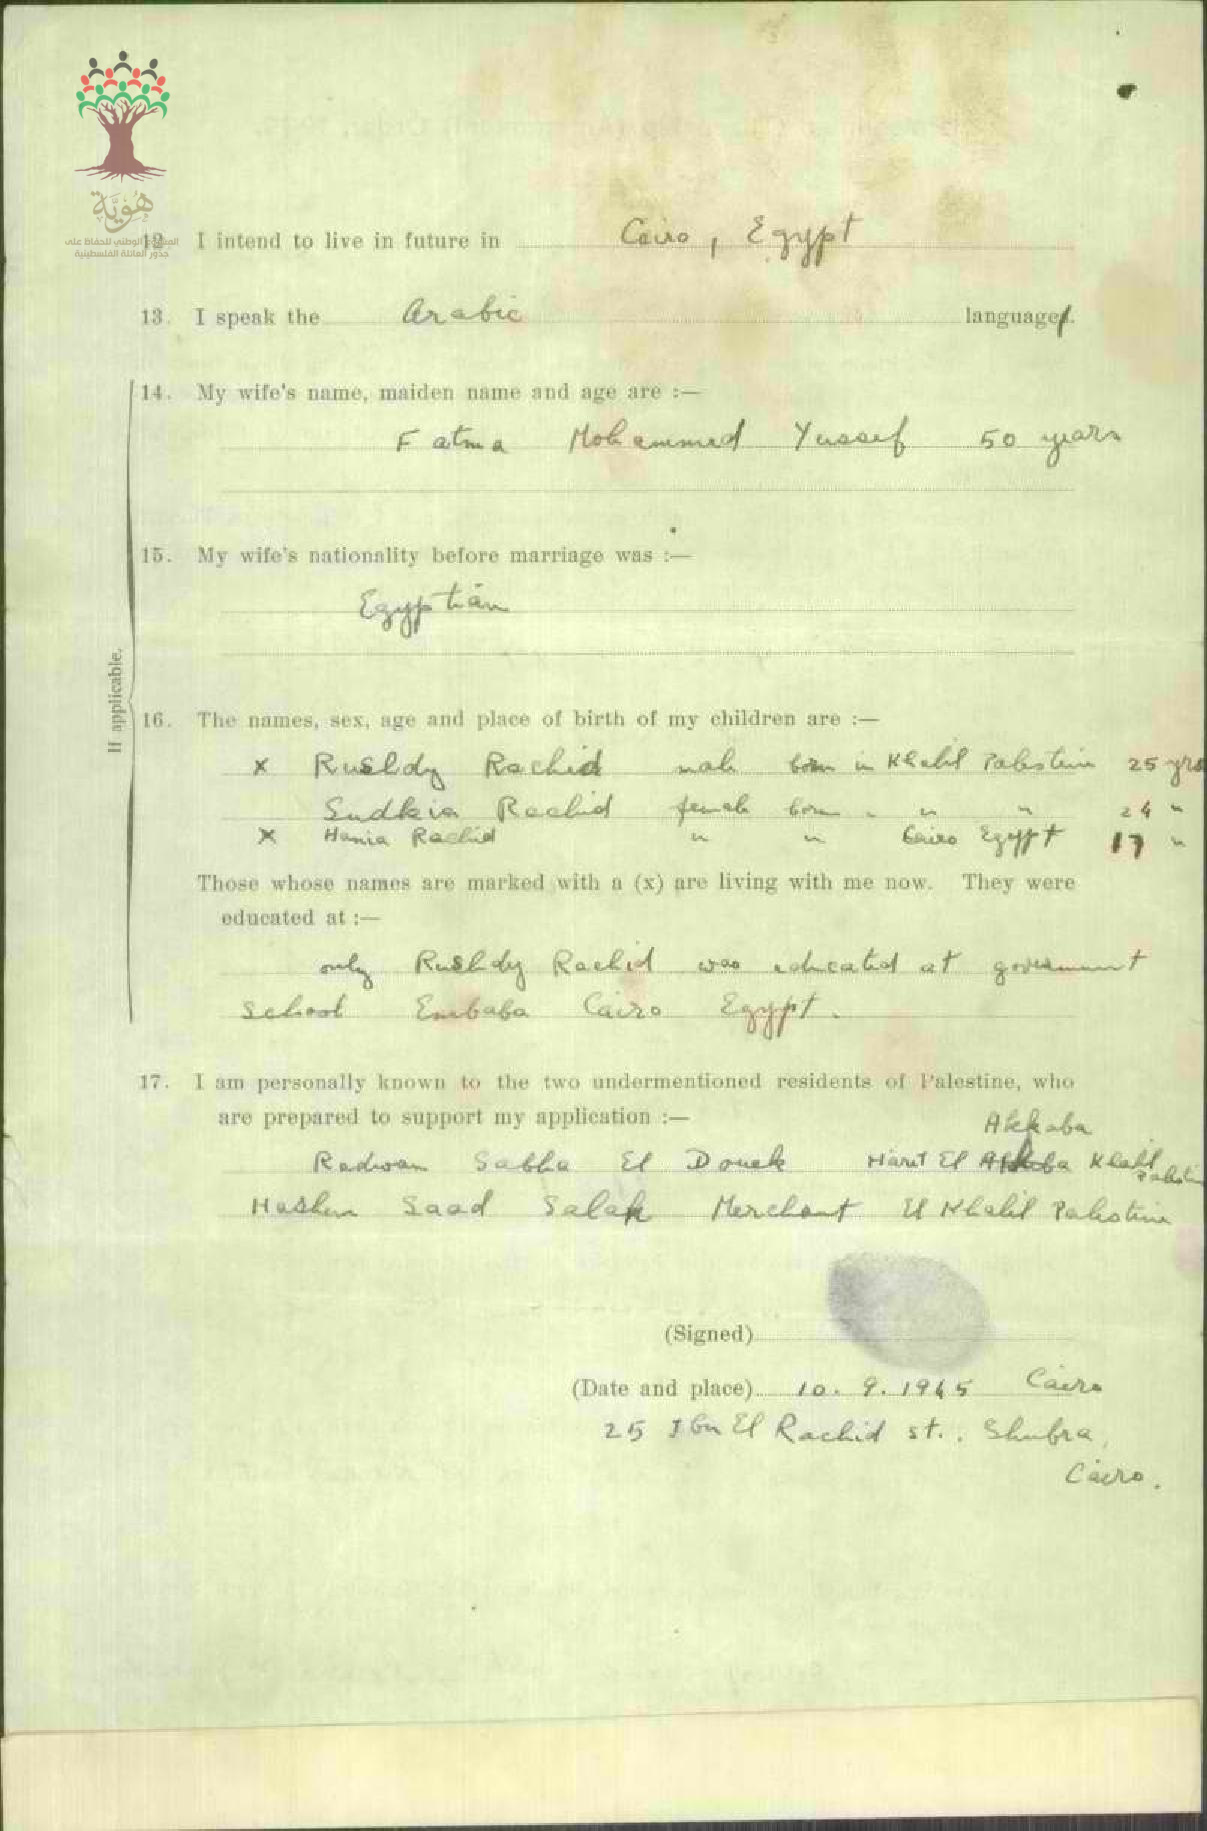 هُوِيَّة
المشروع الوطني للحفاظ على
جذور العائلة الفلسطينية
12. I intend to live in future in Cairo, Egypt
13. I speak the Arabic language.
14. My wife's name, maiden name and age are :—
Fatma Mohammed Yussef 50 years
15. My wife's nationality before marriage was :—
Egyptian
If applicable.
16. The names, sex, age and place of birth of my children are :—
x Rushdy Rachid male born in Khalil Palestine 25 yrs
Sudkia Rachid female born " " " 24 "
x Hania Rachid " " Cairo Egypt 17 "
Those whose names are marked with a (x) are living with me now. They were
educated at :—
only Rushdy Rachid was educated at government
school Embaba Cairo Egypt.
17. I am personally known to the two undermentioned residents of Palestine, who
are prepared to support my application :—
Akkaba
Radwan Sabha El Douek Haret El Khalil Palestine
Hashem Saad Salah Merchant El Khalil Palestine
(Signed)
(Date and place) 10.9.1945 Cairo
25 Ibn El Rachid st., Shubra,
Cairo.